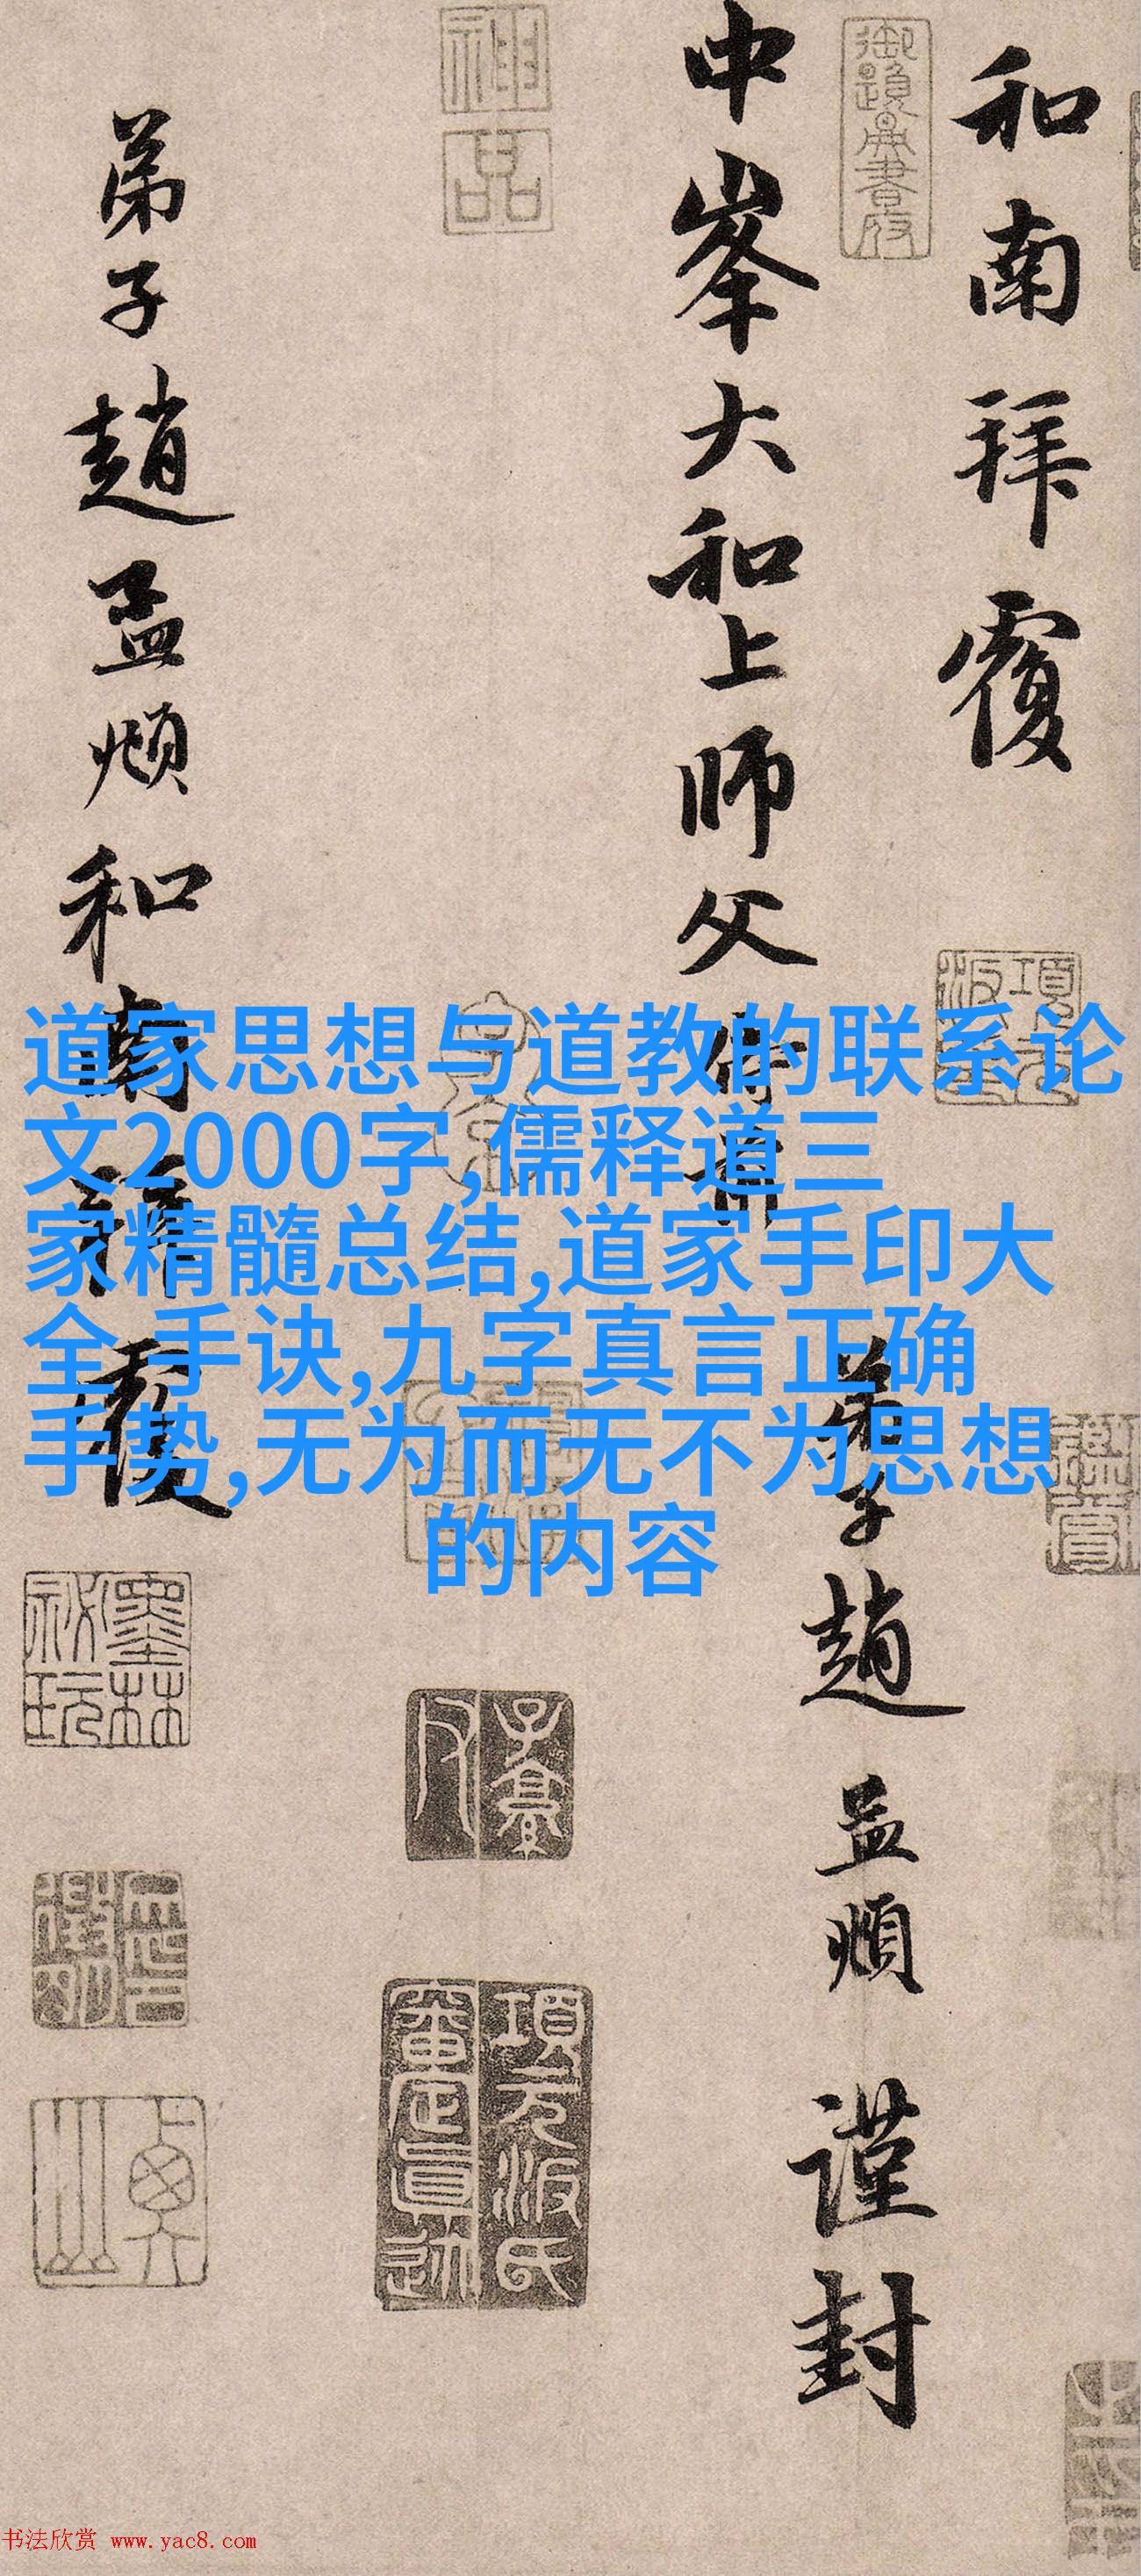 和南拜覆
中峯大和上师父侍前
弟子趙孟頫謹封
弟子趙孟頫和南拜覆
神品
墨林祕玩
項元汴氏審定真跡
道家思想与道教的联系论
文2000字,儒释道三
家精髓总结,道家手印大
全 手诀,九字真言正确
手势,无为而无不为思想
的内容
书法欣赏 www.yac8.com